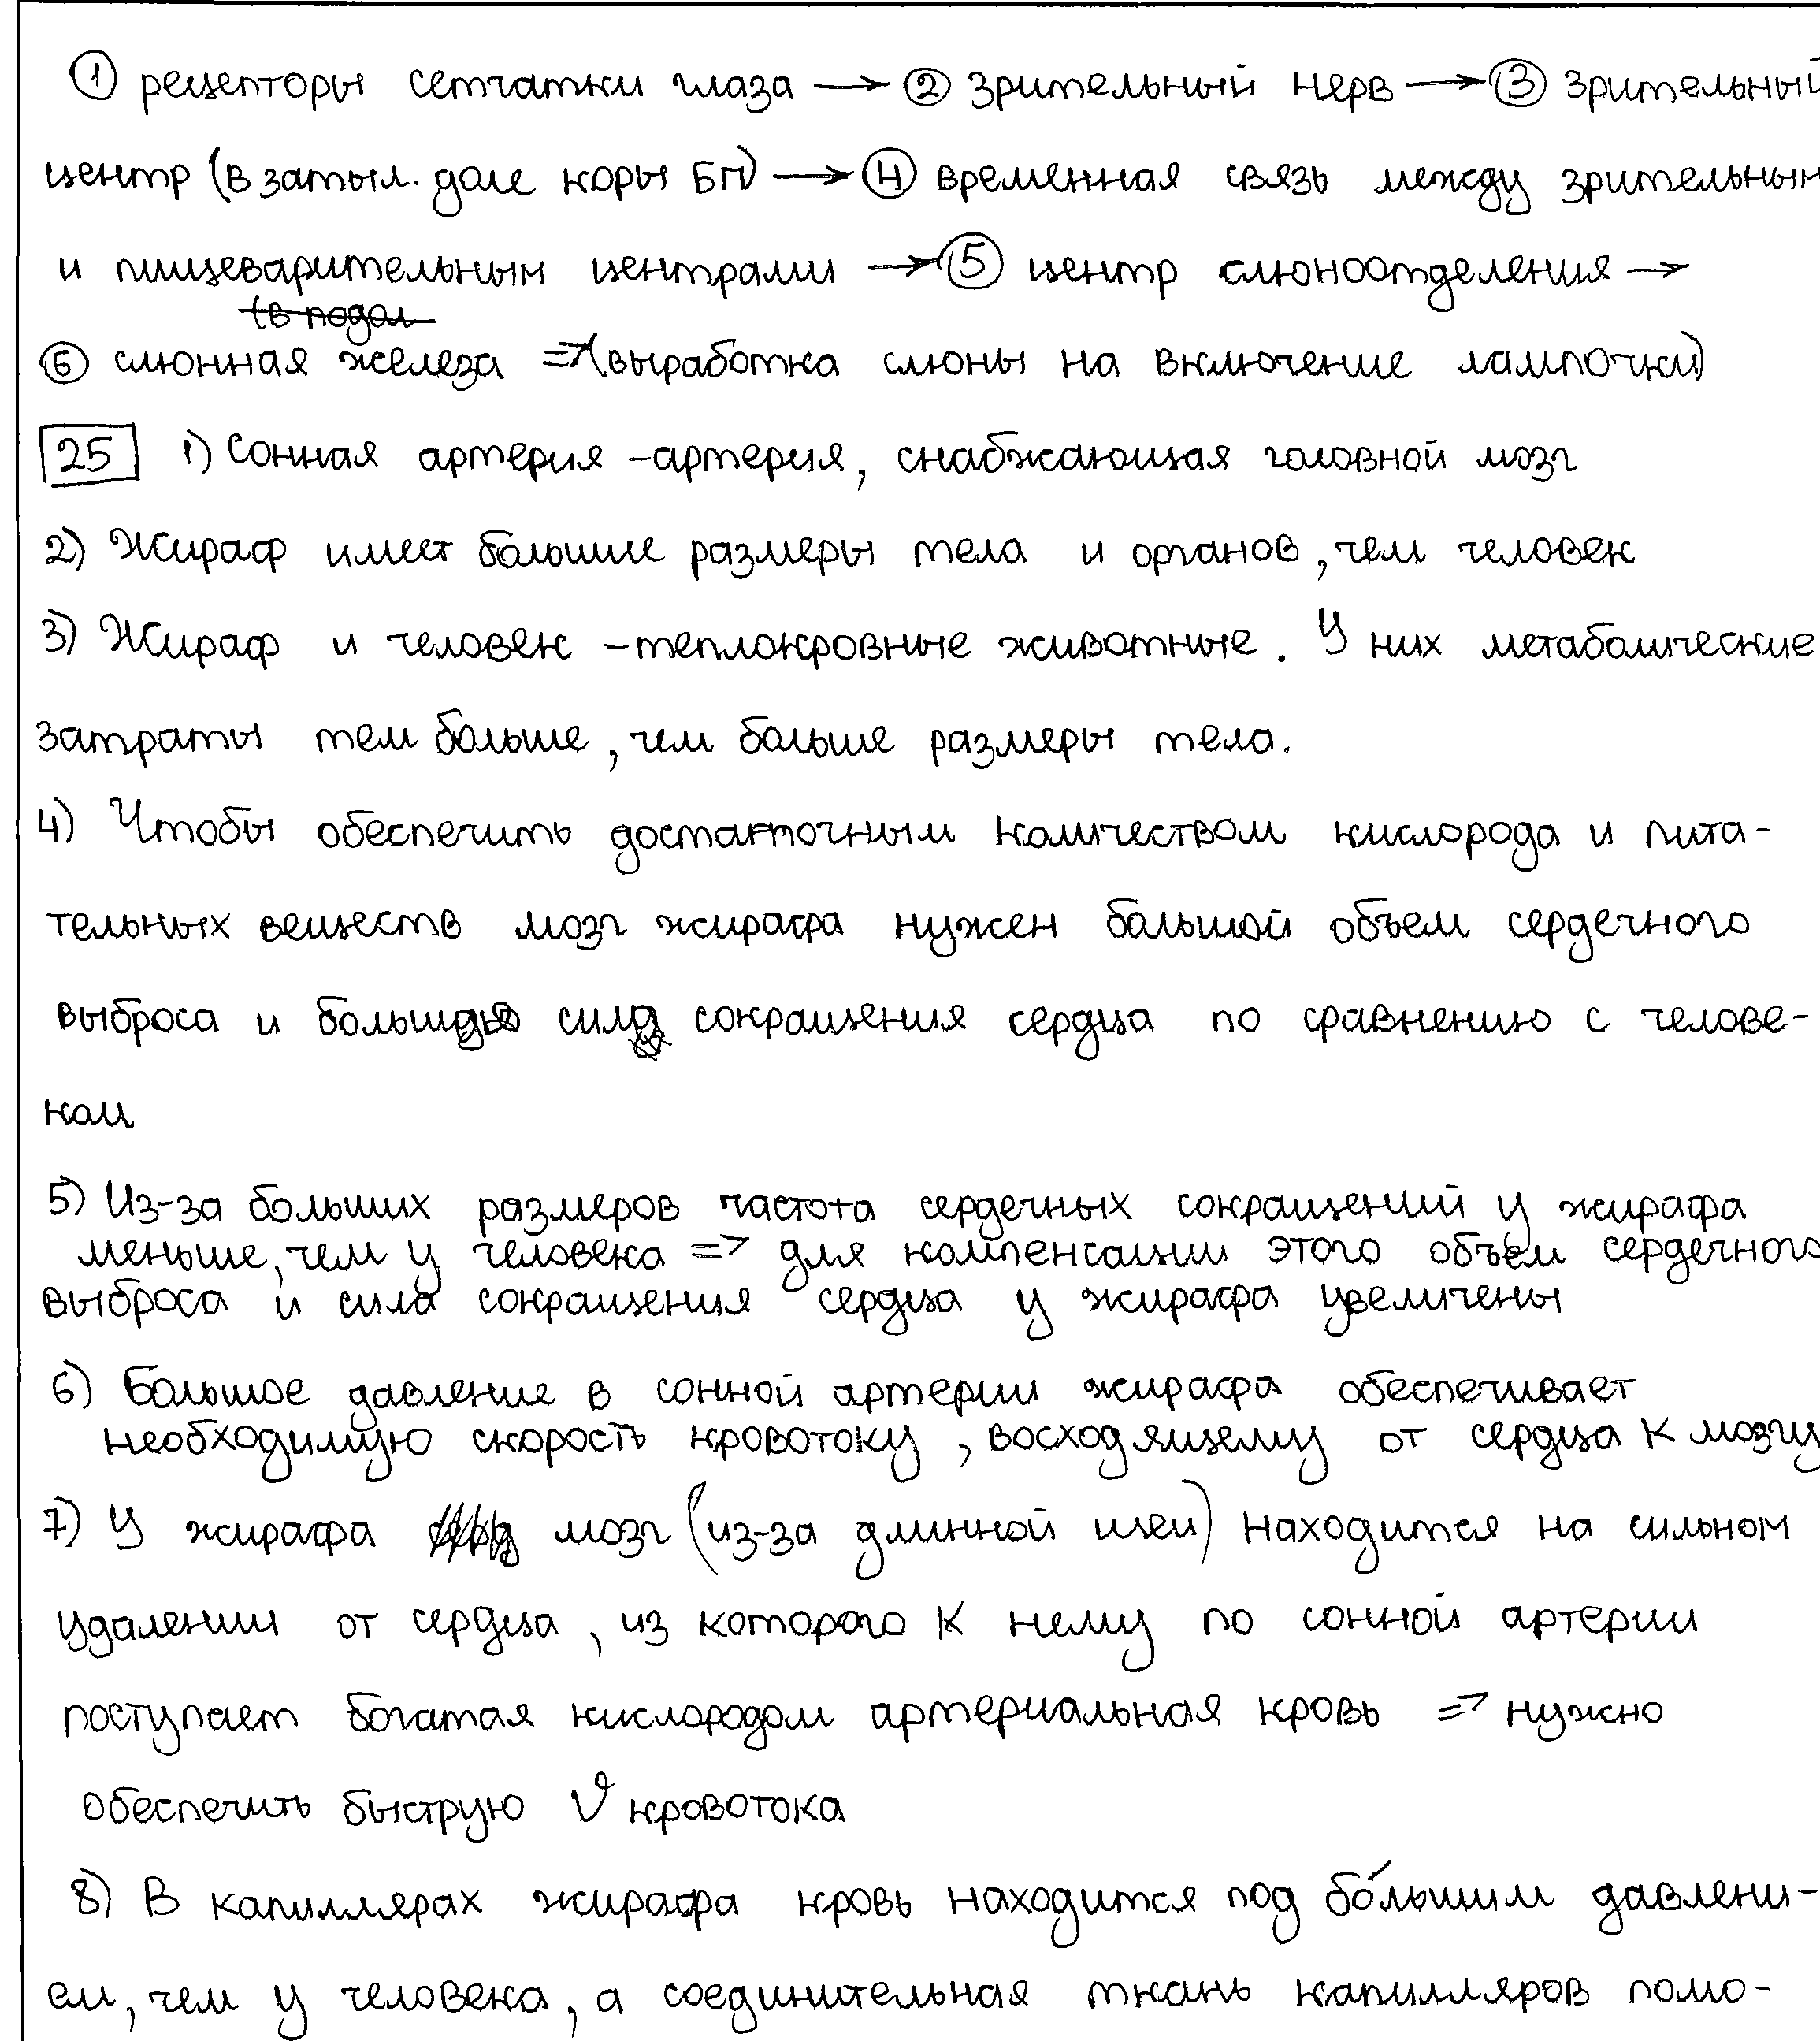 ① рецепторы сетчатки глаза → ② зрительный нерв → ③ зрительный
центр (в затыл. доле коры БП) → ④ временная связь между зрительным
и пищеварительным центрами → ⑤ центр слюноотделения →
⑥ слюнная железа => (выработка слюны на включение лампочки)
25 1) Сонная артерия - артерия, снабжающая головной мозг
2) Жираф имеет большие размеры тела и органов, чем человек
3) Жираф и человек - теплокровные животные. У них метаболические
затраты тем больше, чем больше размеры тела.
4) Чтобы обеспечить достаточным количеством кислорода и пита-
тельных веществ мозг жирафа нужен большой объем сердечного
выброса и большая сила сокращения сердца по сравнению с челове-
ком
5) Из-за больших размеров частота сердечных сокращений у жирафа
меньше, чем у человека => для компенсации этого объем сердечного
выброса и сила сокращения сердца у жирафа увеличены
6) Большое давление в сонной артерии жирафа обеспечивает
необходимую скорость кровотоку, восходящему от сердца к мозгу
7) У жирафа мозг (из-за длинной шеи) находится на сильном
удалении от сердца, из которого к нему по сонной артерии
поступает богатая кислородом артериальная кровь => нужно
обеспечить быструю V кровотока
8) В капиллярах жирафа кровь находится под бо́льшим давлени-
ем, чем у человека, а соединительная ткань капилляров помо-